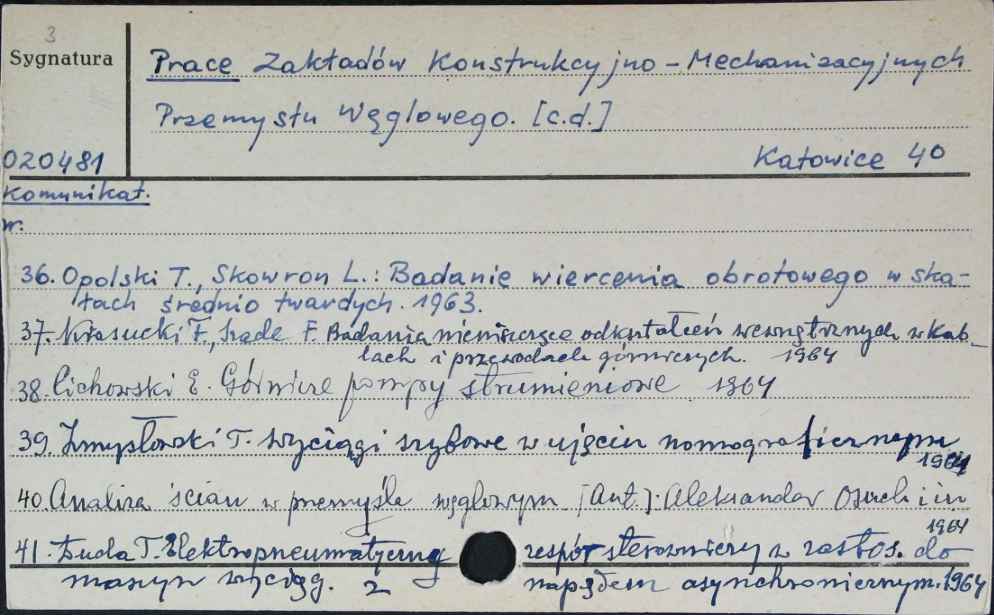 3
Sygnatura
Prace Zakładów Konstrukcyjno-Mechanizacyjnych
Przemysłu Węglowego. [c.d.]
020481
Katowice 40
Komunikat.
nr.
36. Opolski T., Skowron L.: Badanie wiercenia obrotowego w ska-
łach średnio twardych. 1963.
37. Krasucki F., F. Badania nieniszczące odkształceń wewnętrznych w kab-
lach i przewodach górniczych. 1964
38. Cichowski E. Górnicze pompy strumieniowe 1964
39. Zmysłowski T. Wyciągi szybowe w ujęciu nomograficznym
1964
40. Analiza ścian w przemyśle węglowym [Aut.]: Aleksander Osuch i in
1964
41. Duda T. Elektropneumatyczny zespół sterowniczy z zastos. do
maszyn wyciąg. z napędem asynchronicznym. 1964